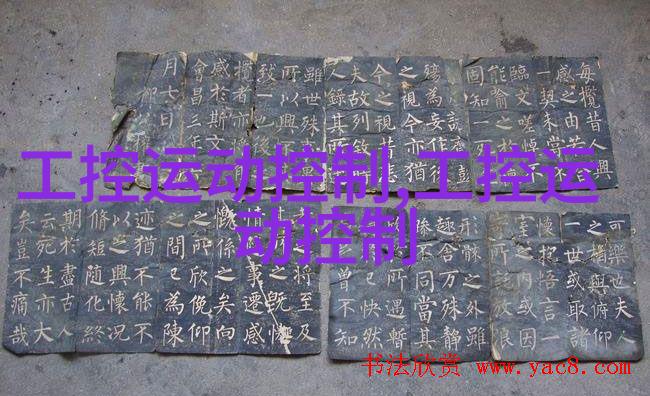 每攬昔人興
感之由若
一契未嘗不
臨文嗟悼不
能喻之於
固知一
彭
殤為妄作後
之視今亦猶
今之視昔悲
夫故列敘
人錄其所
雖世殊
所以興
致一也後
攬者亦
感於斯文
會昌三年
月七日
工控运动控制,工控运
动控制
可樂也夫人
之相與俯仰
一世或取諸
懷抱悟言一
室之內或因
所託放浪
形骸之外雖
趣合萬殊靜
不同當其
所遇暫
己快然
曾不知
之將至及
之既惓
事遷感
慨係之矣向
之所欣俛仰
之間已為陳
迹猶不能不
以之興懷況
脩短隨化終
期於盡古人
云死生亦大
矣豈不痛哉
书法欣赏 www.yac8.com